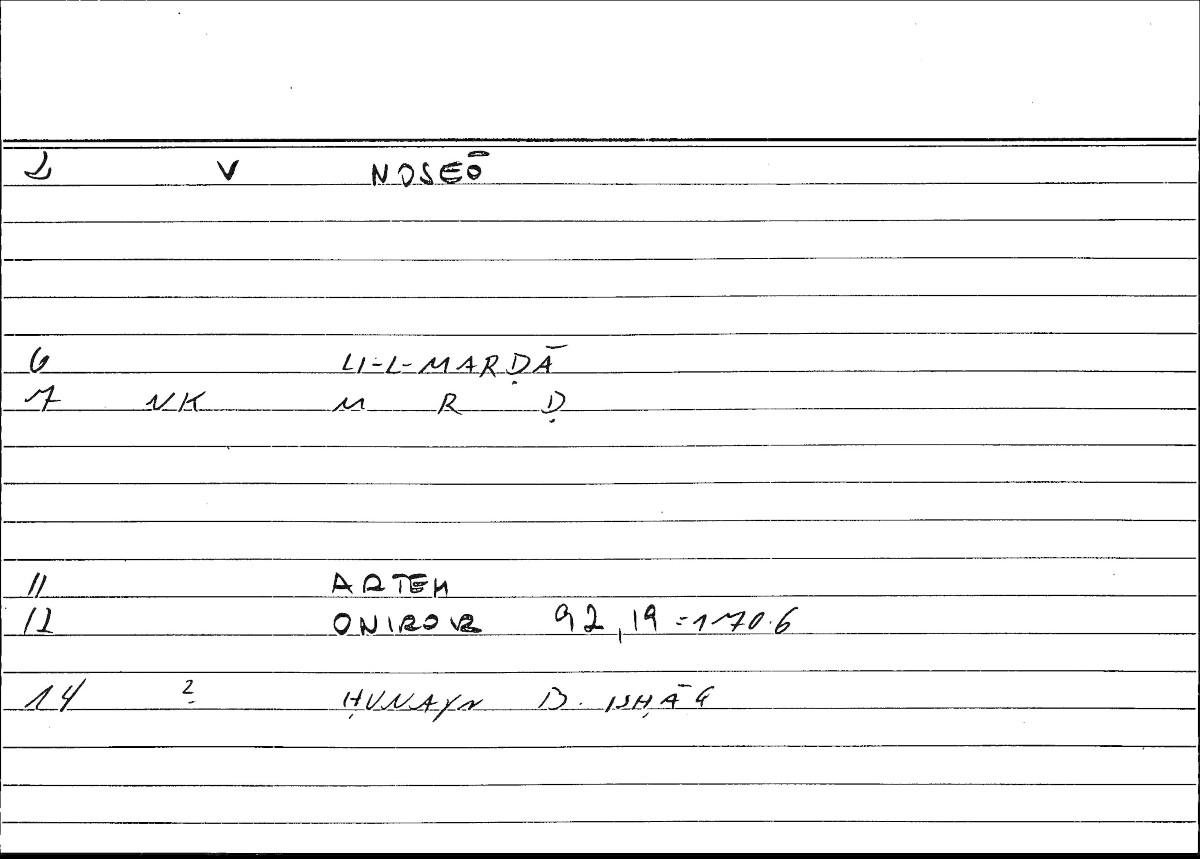 2 V NOSEŌ
6 LI-L-MARḌĀ
7 NK M R Ḍ
11 ARTEM
12 ONIROCR 92,19 = 170.6
14 2 ḤUNAYN B. ISḤĀQ